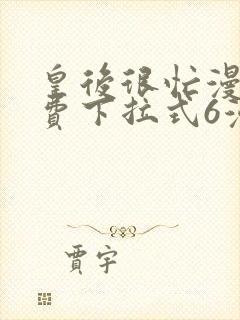 皇後很忙漫
費下拉式6漫
賈宇